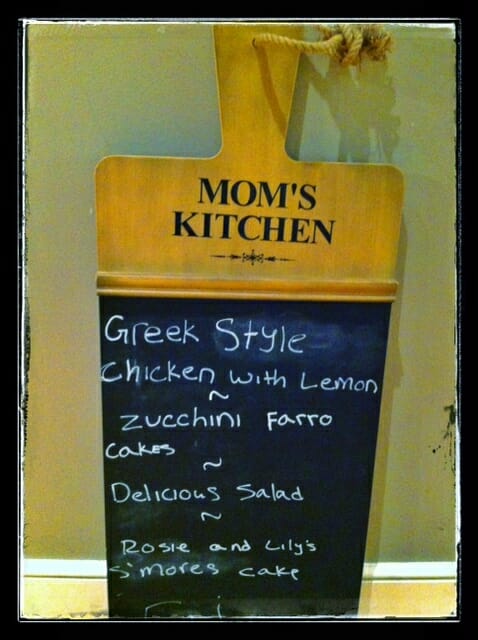 MOM'S
KITCHEN
Greek Style
Chicken with Lemon
~
Zucchini Farro
Cakes
~
Delicious Salad
~
Rosie and Lily's
S'mores cake